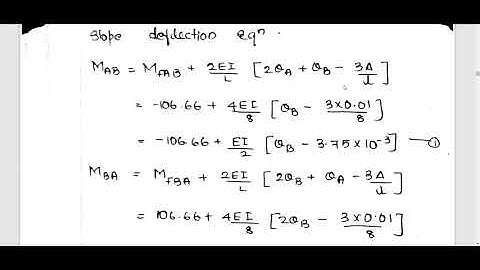 Slope deflection eqn.
M_AB = M_FAB + 2EI/L [2θ_A + θ_B - 3Δ/l]
= -106.66 + 4EI/8 [θ_B - 3×0.01/8]
= -106.66 + EI/2 [θ_B - 3.75×10⁻³] — ①
M_BA = M_FBA + 2EI/L [2θ_B + θ_A - 3Δ/l]
= 106.66 + 4EI/8 [2θ_B - 3×0.01/8]